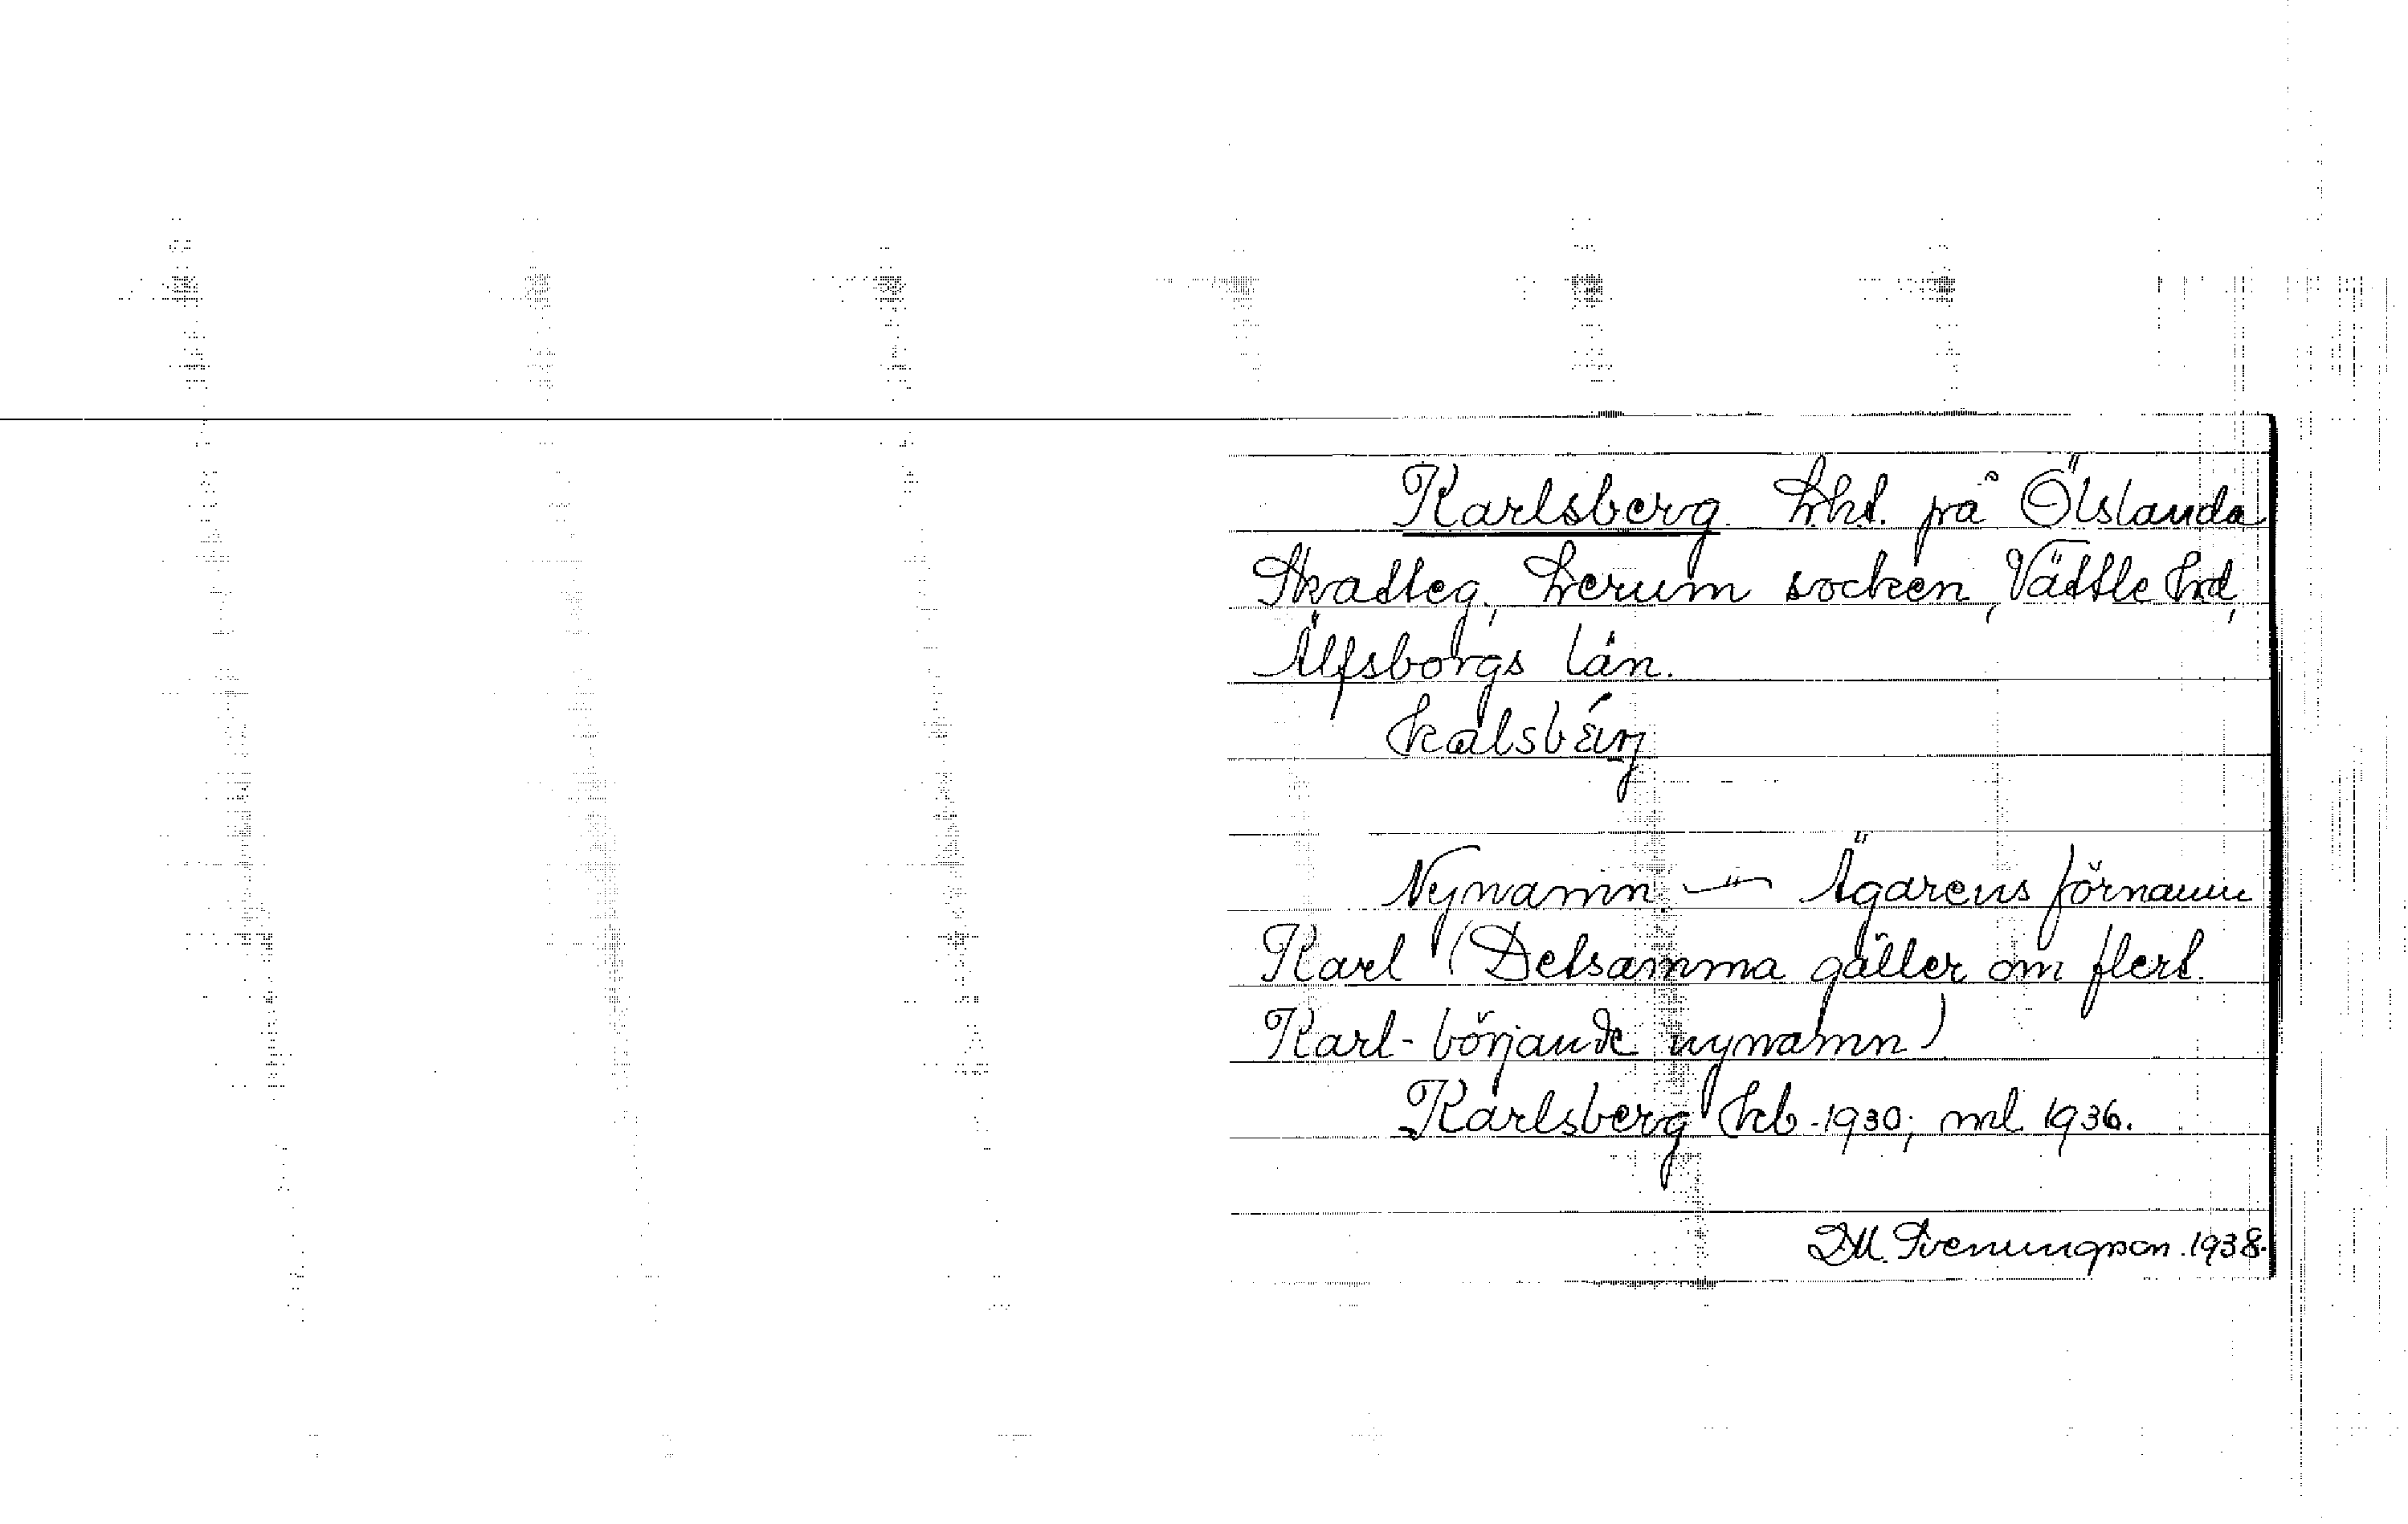 Karlsberg. Lht. på Ölslanda
Skatteg., Lerum socken, Vättle hd,
Älfsborgs län.
kalsbærj
Nynamn. — " — Ägarens förnamn
Karl (Detsamma gäller om flert.
Karl- började nynamn)
Karlsberg kb -1930; ml 1936.
D.M. Svenungsson. 1938.